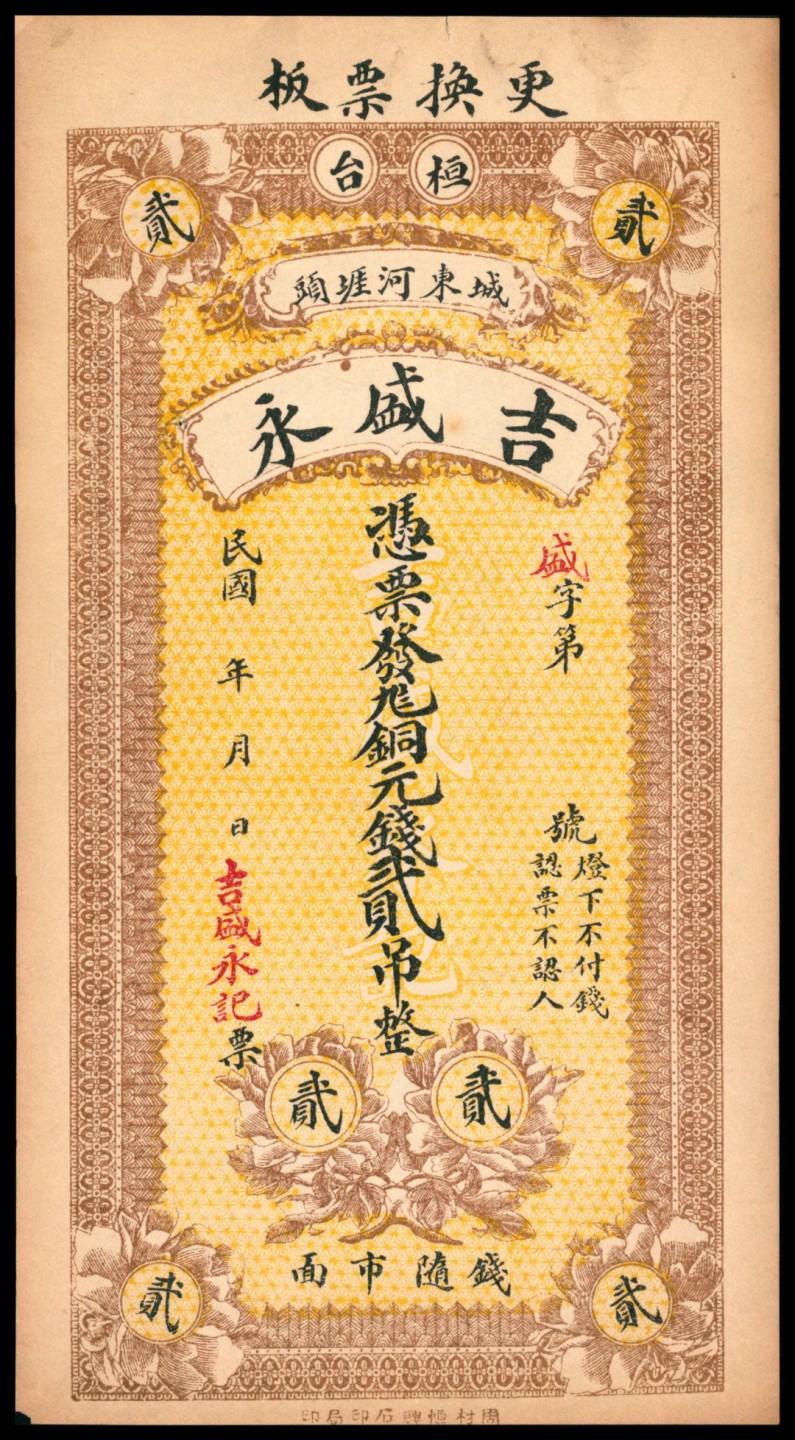 更換票板
桓台
貳
貳
城東河堐頭
吉盛永
盛字第
號
燈下不付錢
認票不認人
憑票發兌銅元錢貳吊整
民國 年 月 日
吉盛永記票
貳
貳
錢隨市面
貳
貳
周村恒興石印局印